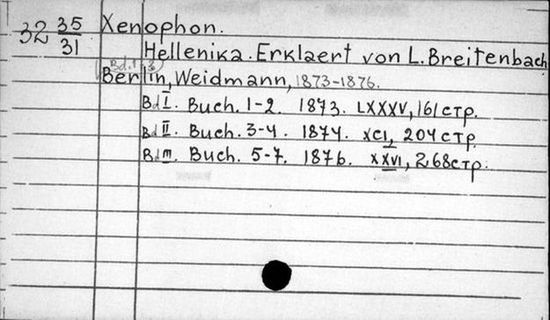 32 35/31 Xenophon.
Hellenika. Erklaert von L. Breitenbach
Berlin, Weidmann, 1873-1876.
Bd I. Buch. 1-2. 1873. LXXXV, 161 стр.
Bd II. Buch. 3-4. 1874. XCI, 204 стр.
Bd III. Buch. 5-7. 1876. XXVI, 268 стр.